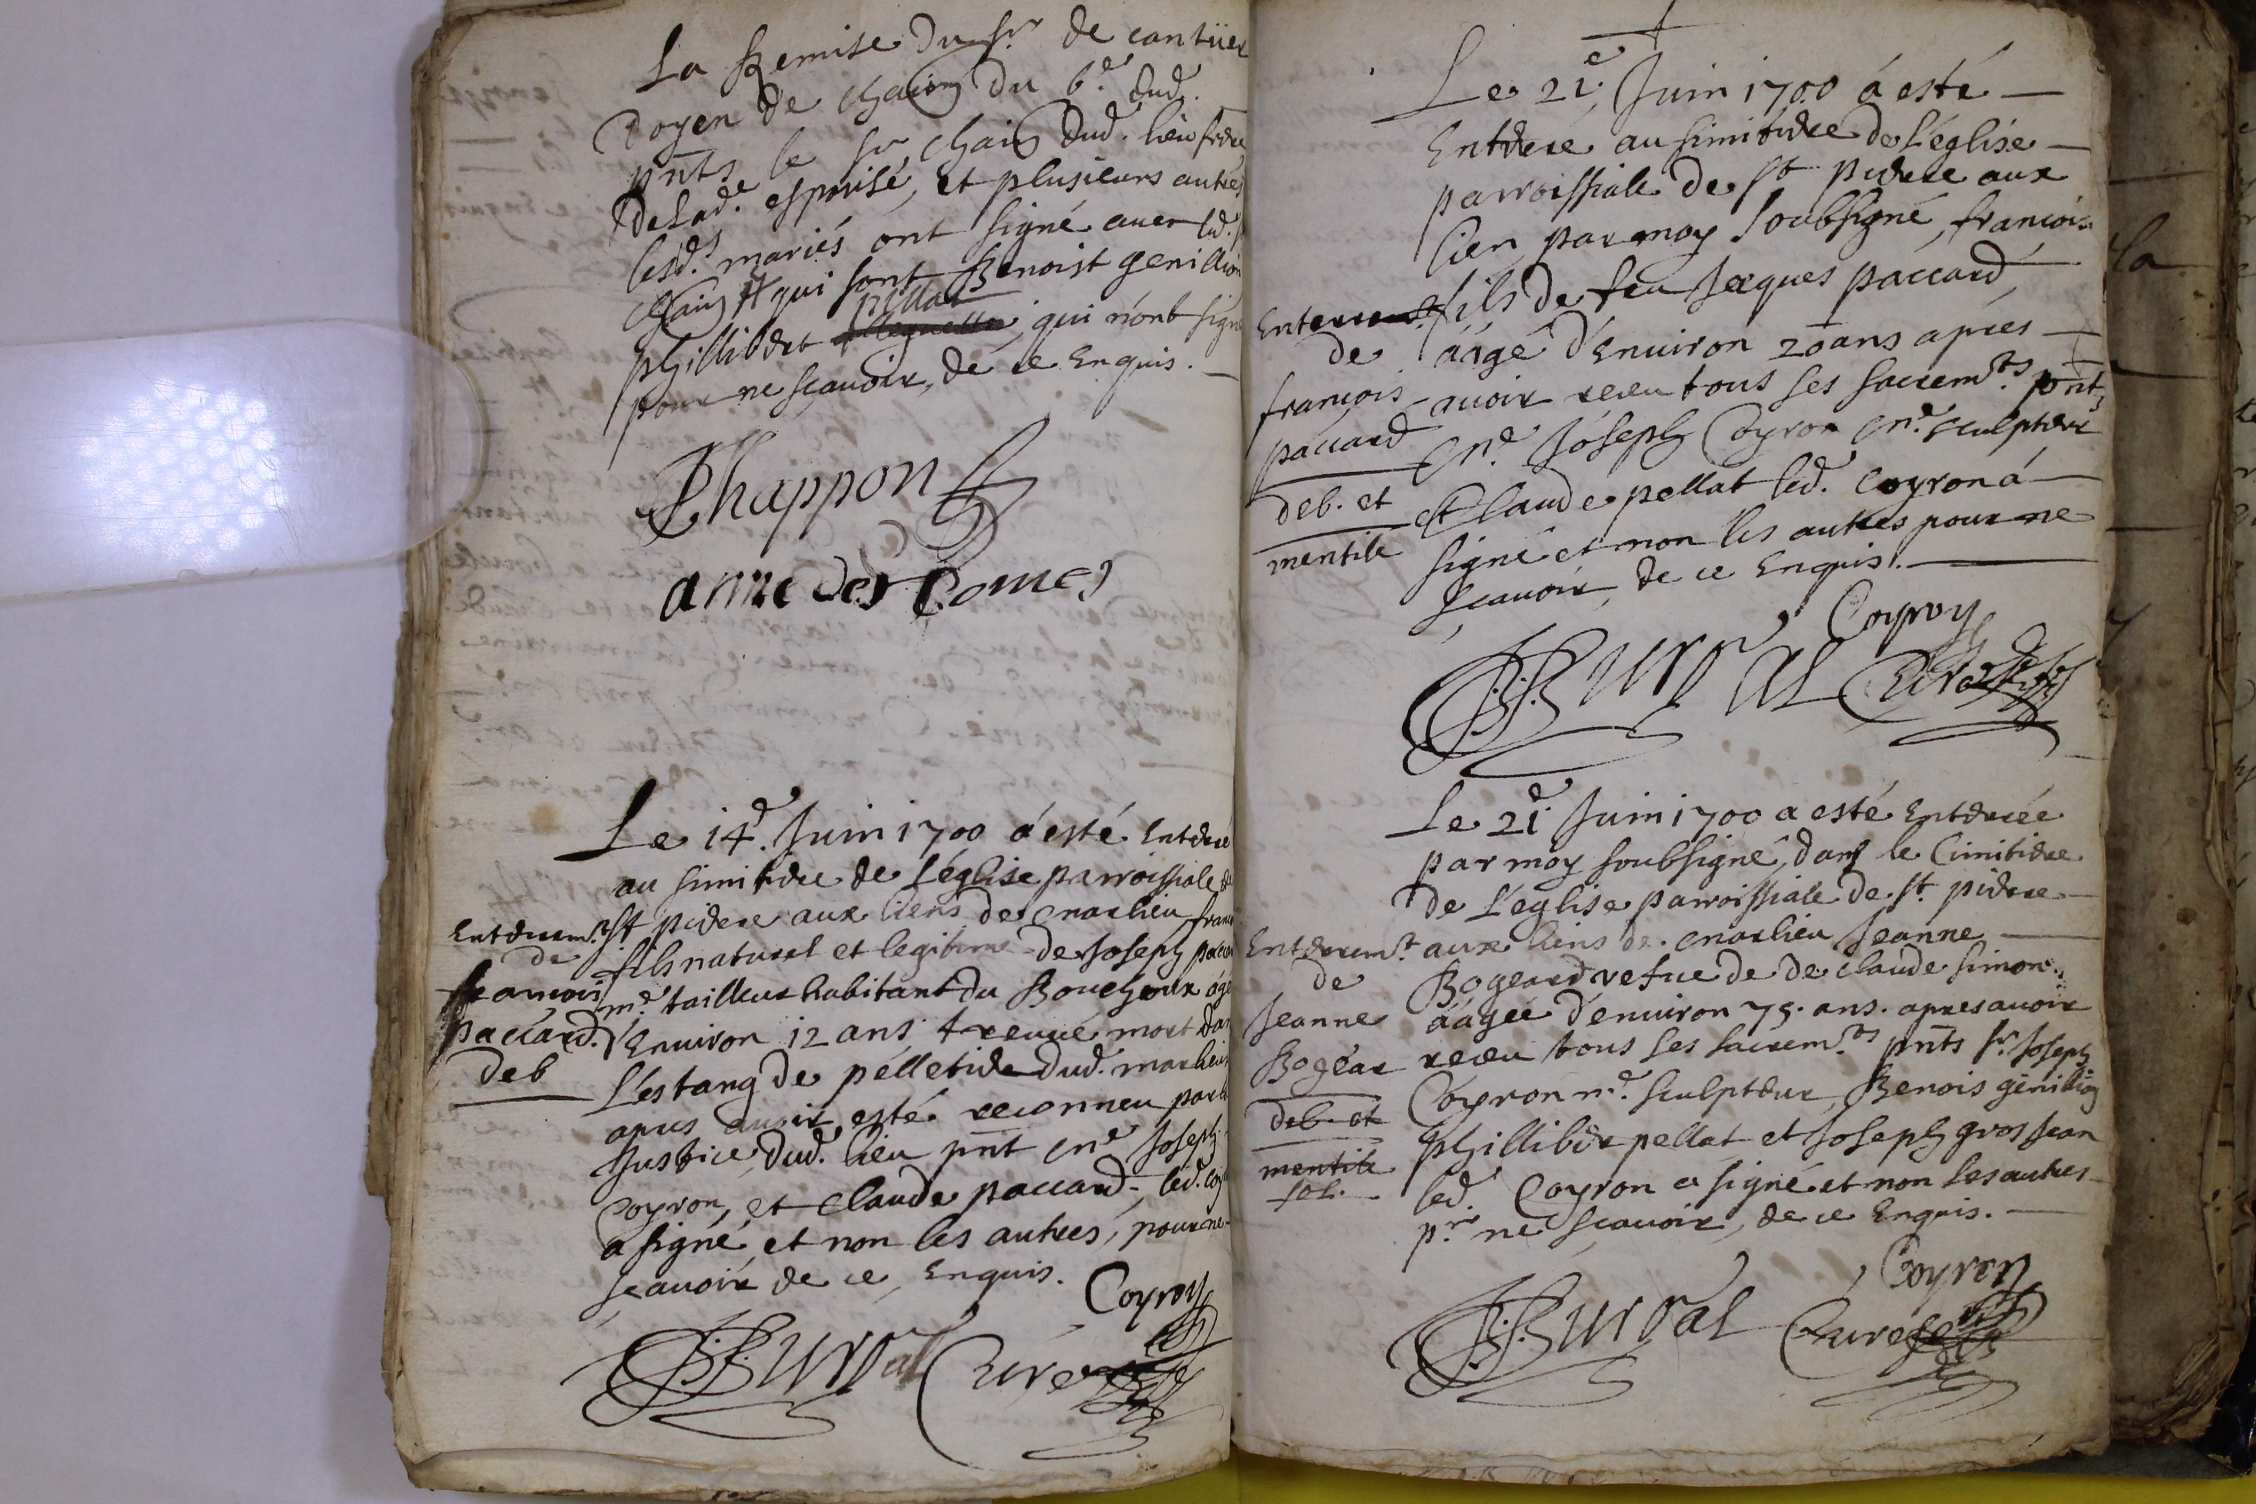 La Remise du sr de cantüer
Doyen de du 6e dud.
pnts le sr dud. lieu frere
de lad.e espousé, et plusieurs autres
lesd.s mariés ont signé avec led.
qui sont Benoist genillion
pellat
phillibert qui n'ont signé
pour ne scavoir, de ce Enquis.
Chappon
anne des Comes
Le 14.e Juin 1700 á esté Enterré
au simitiere de l'église parroissiale de
st pierre aux liens de marlieu
fils naturel et legitime de Joseph
m.e tailleur habitant du âgé
d'Environ 12 ans, treuvé mort dans
L'estang de pélletier dud. marlieu
apres avoir esté reconneu par la
Justice dud. lieu pnt m.e Joseph
Coyron, et Claude paccard, led.
a signé et non les autres, pour ne
scavoir de ce Enquis.
Coyron
Burdal Curé
Enterrem.t
de
francois
paccard.
deb
Le 21.e Juin 1700 á esté
Enterré au simitiere de l'église
parroissiale de st pierre aux
lien par moy soubsigné, francois
fils de feu Jacques paccard,
aâgé d'Environ 20 ans apres
avoir receu tous ses sacrem.ts pnts
m.e Joseph Coyron m.e sculpteur
et Claude pellat led. Coyron á
signé et non les autres pour ne
scavoir, de ce Enquis.
Coyron
Burdal Curé
Enterrem.t
de
francois
paccard
deb. et
mentite
Le 21.e Juin 1700 a esté Enterrée
par moy soubsigné, dans le Cimitiere
de l'eglise parroissiale de st. pierre
aux liens de marlieu Jeanne
Bogeard vefue de de Claude Simon
aâgée d'environ 75. ans. apres avoir
receu tous ses sacrem.ts pnts sr. Joseph
Coyron m.e sculpteur, Benois genillion
phillibert pellat et Joseph gros Jean
led. Coyron a signé et non les autres
p.r ne scavoir, de ce Enquis.
Coyron
Burdal Curé
Enterrem.t
de
Jeanne
Bogear
deb. et
mentite
sol.
la